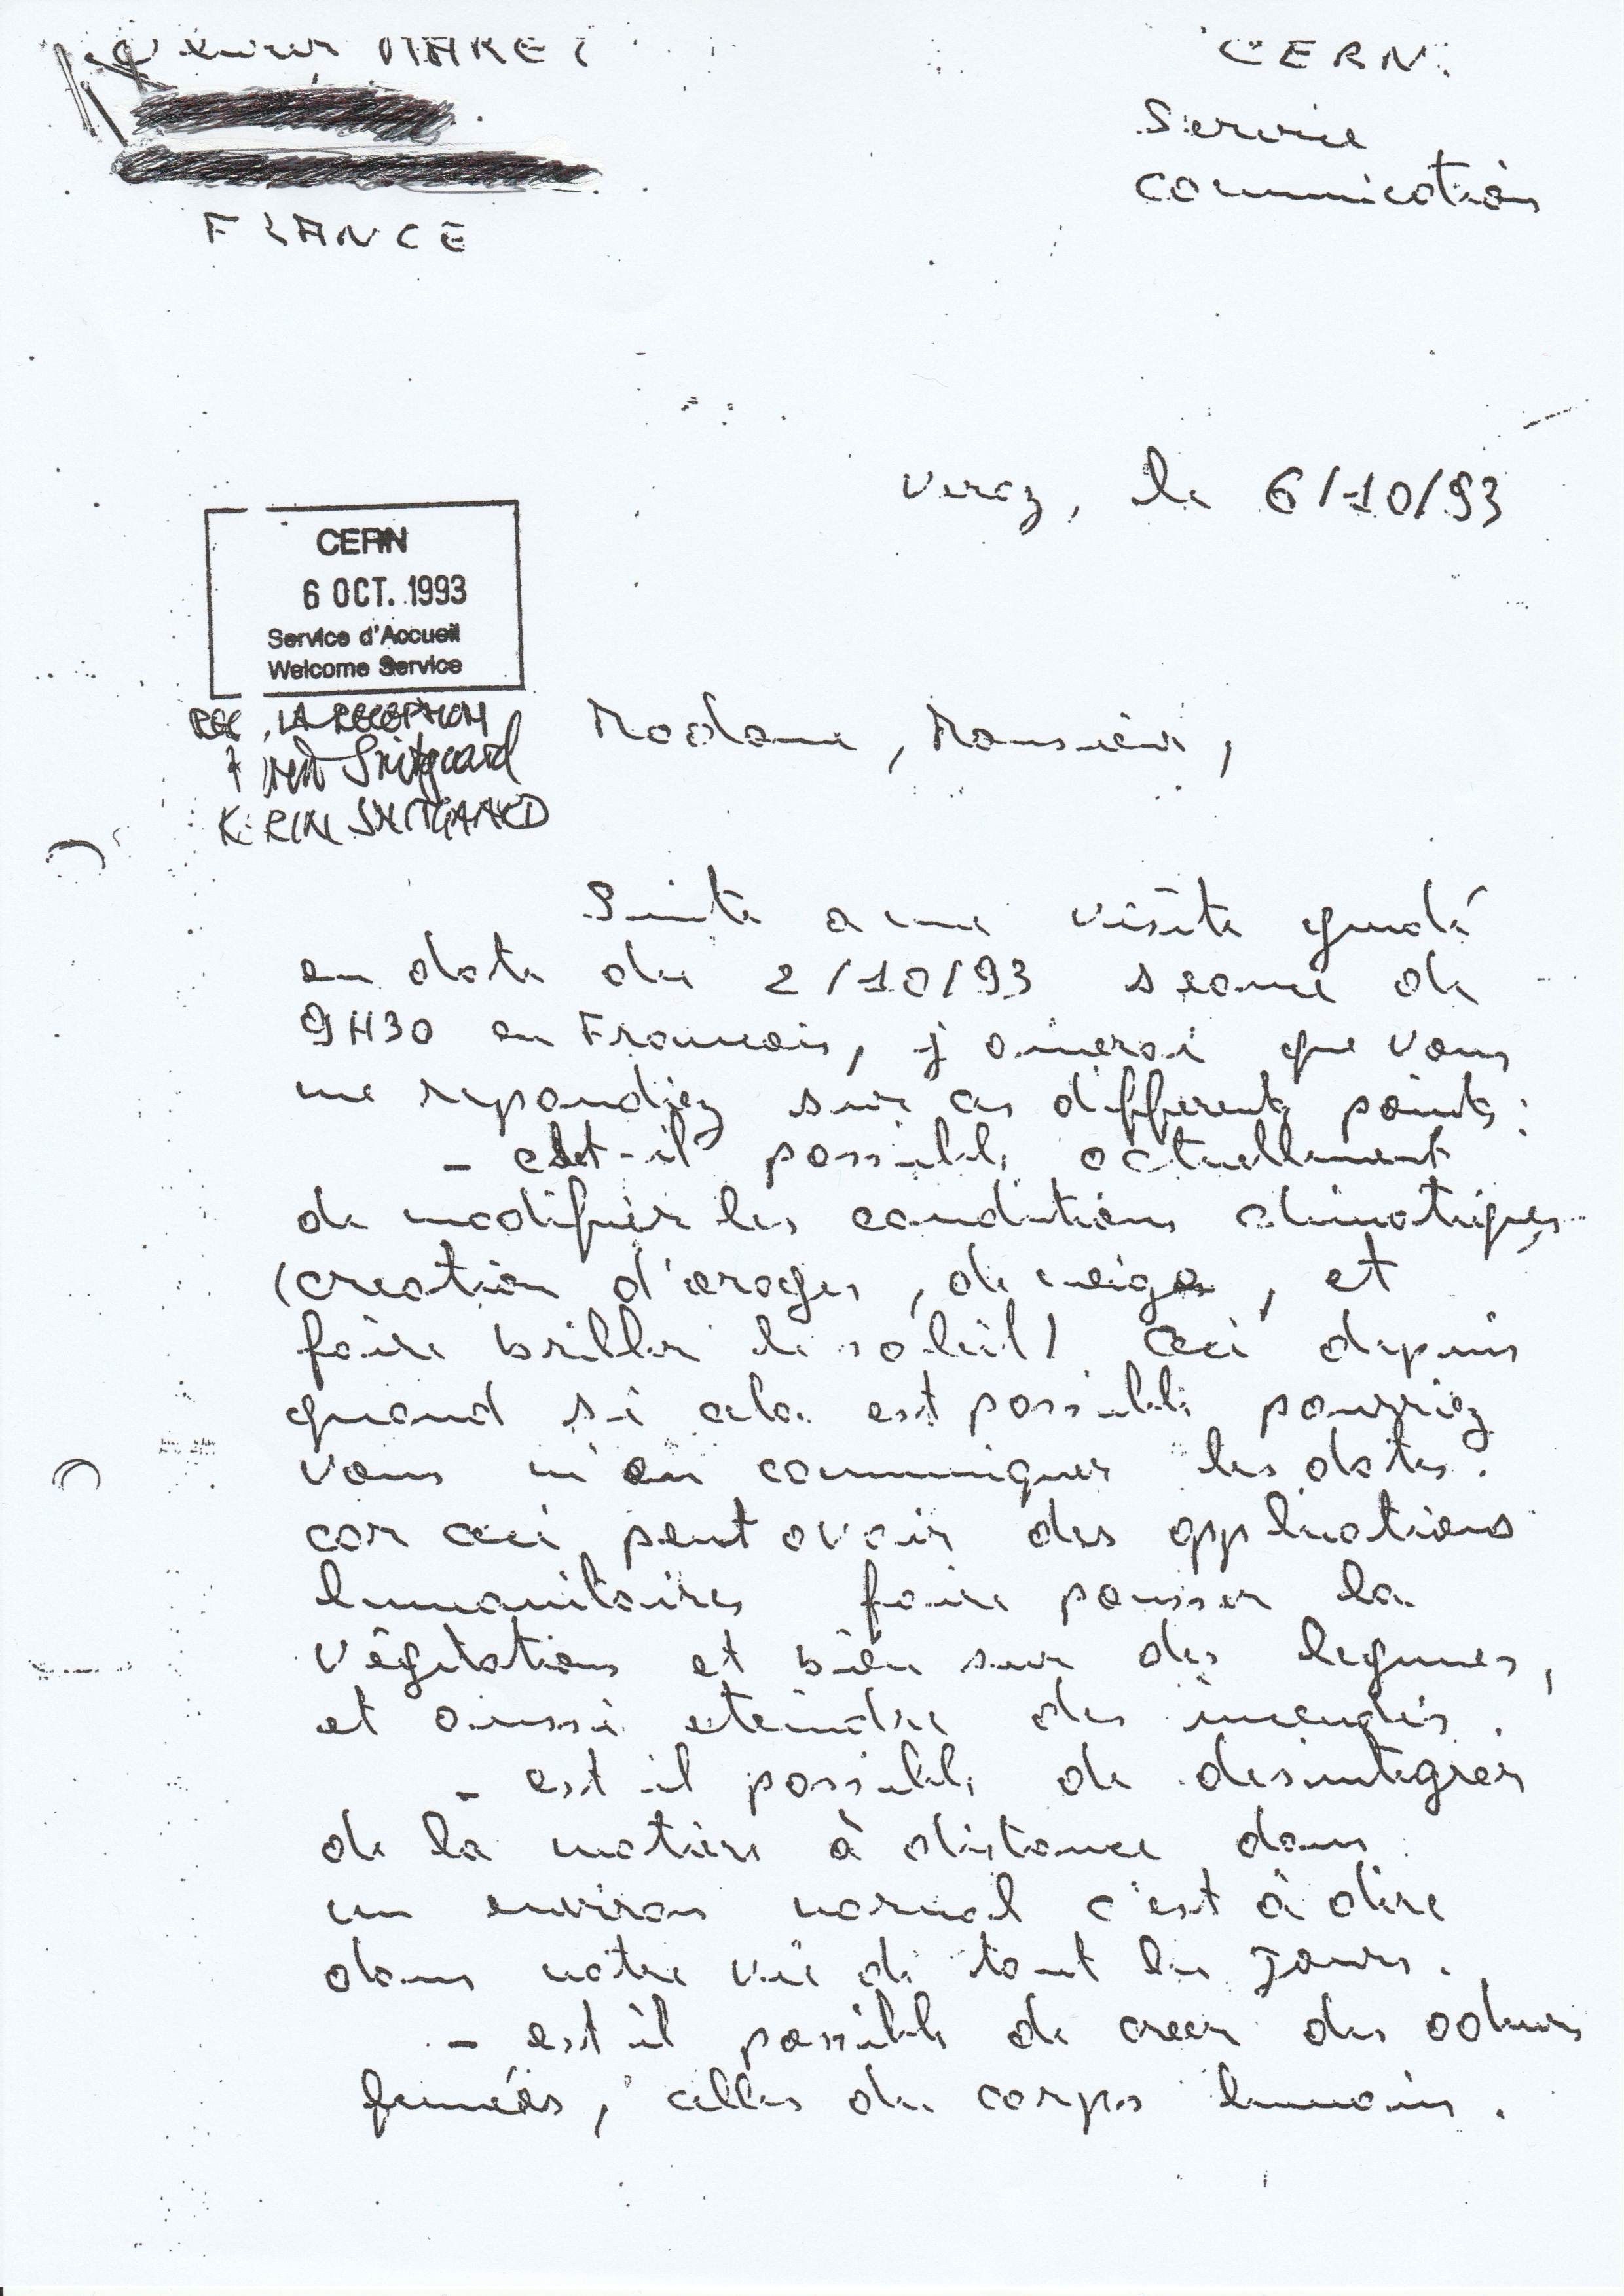 MARET
CERN
Service
communication
FRANCE
Veroz, le 6/10/93
CERN
6 OCT. 1993
Service d'Accueil
Welcome Service
LA RECEPTION
SNITGAARD
Madame, Monsieur,
Suite a une visite guidé
en date du 2/10/93 seance de
9H30 en Francais, j'aimerai que vous
me repondiez sur ces different points:
- est-il possible actuellement
de modifier les conditions climatiques
(creation d'orages, de neige, et
faire briller le soleil) Ceci depuis
quand si cela est possible pourriez
vous m'en communiquer les dates.
car ceci peut avoir des applications
humanitaires faire pousser la
végétations et bien sur des legumes,
et aussi eteindre des incendies.
- est il possible de desintegrer
de la matière à distance dans
un environ normal c'est à dire
dans notre vie de tout les jours.
- est il possible de creer des odeurs
fumées, celles du corps humain.